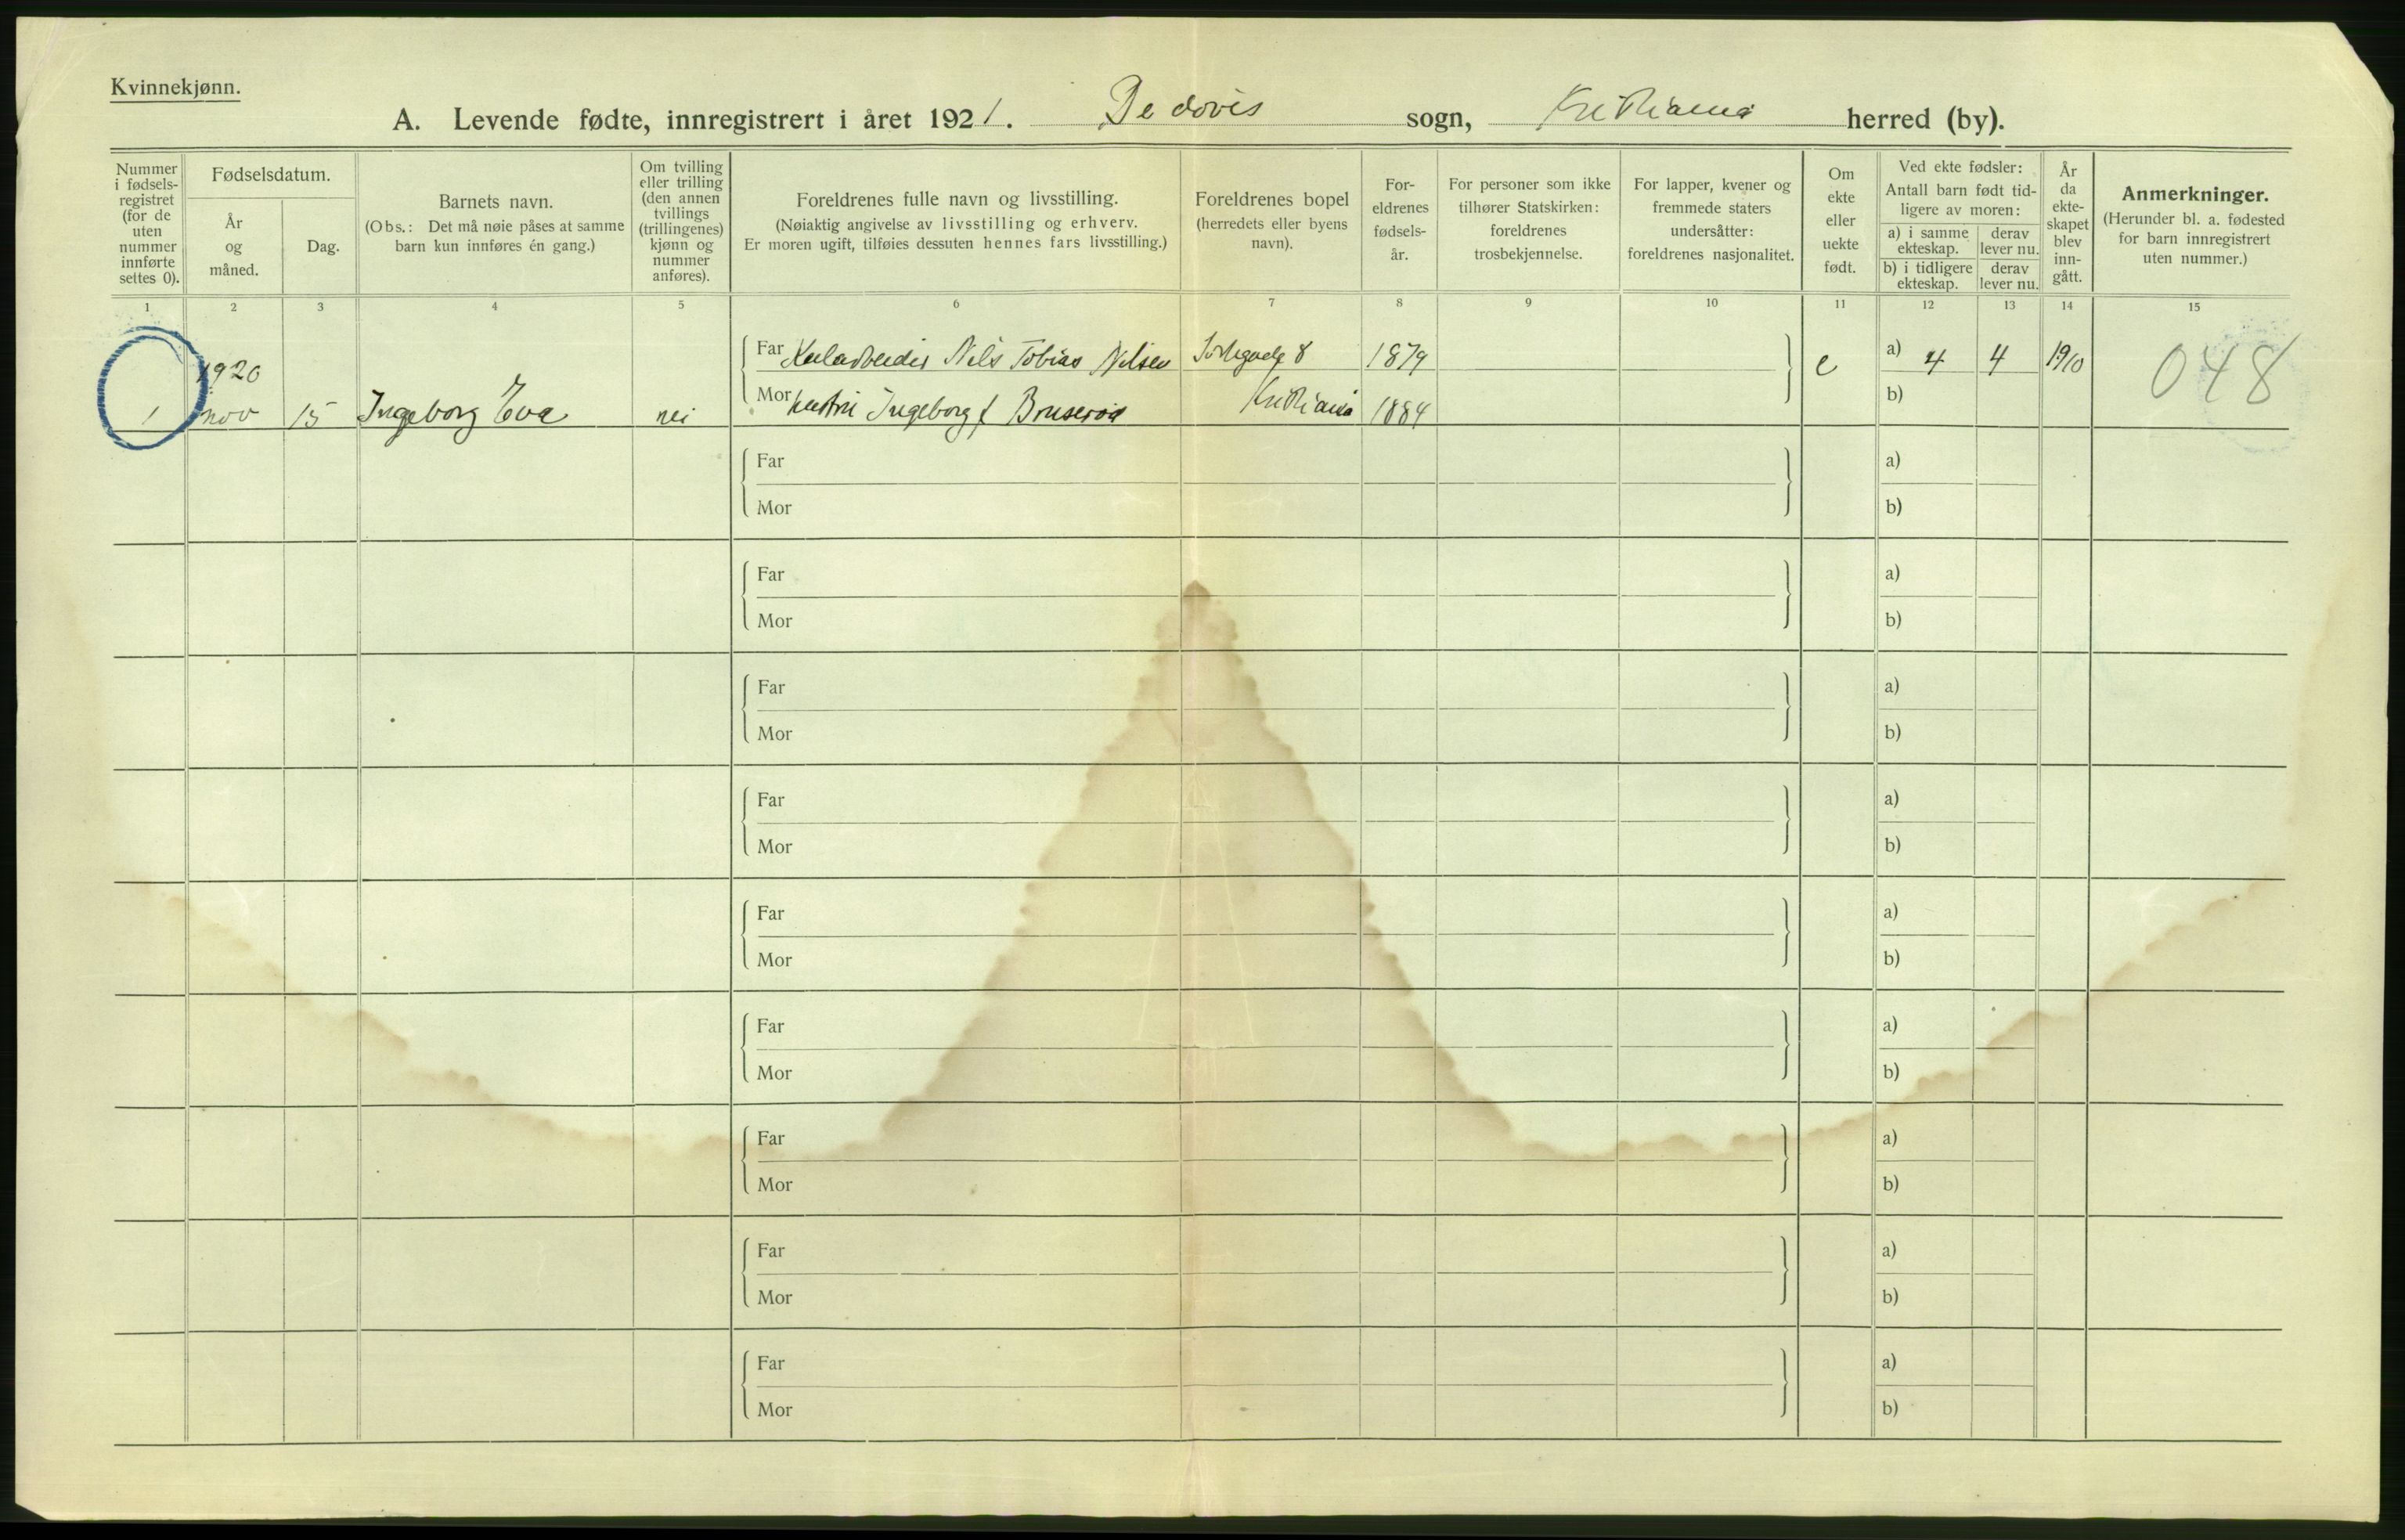 Kvinnekjønn.
A. Levende fødte, innregistrert i året 1921. De døves sogn, Kristiania herred (by).
Nummer i fødsels-registret (for de uten nummer innførte settes 0).
Fødselsdatum.
År og måned.
Dag.
Barnets navn.
(Obs.: Det må nøie påses at samme barn kun innføres én gang.)
Om tvilling eller trilling (den annen tvillings (trillingenes) kjønn og nummer anføres).
Foreldrenes fulle navn og livsstilling.
(Nøiaktig angivelse av livsstilling og erhverv.
Er moren ugift, tilføies dessuten hennes fars livsstilling.)
Foreldrenes bopel
(herredets eller byens navn).
For-eldrenes fødsels-år.
For personer som ikke tilhører Statskirken: foreldrenes trosbekjennelse.
For lapper, kvener og fremmede staters undersåtter: foreldrenes nasjonalitet.
Om ekte eller uekte født.
Ved ekte fødsler:
Antall barn født tid-ligere av moren:
a) i samme ekteskap.
derav lever nu.
b) i tidligere ekteskap.
derav lever nu.
År da ekte-skapet blev inn-gått.
Anmerkninger.
(Herunder bl. a. fødested for barn innregistrert uten nummer.)
1 2 3 4 5 6 7 8 9 10 11 12 13 14 15
1920
Far Nils Tobias Nilsen 8 1879 e a) 4 4 1910 048
1 nov 15 Ingeborg Eva nei
Mor Hustru Ingeborg f Bruserød Kristiania 1884 b)
Far a)
Mor b)
Far a)
Mor b)
Far a)
Mor b)
Far a)
Mor b)
Far a)
Mor b)
Far a)
Mor b)
Far a)
Mor b)
Far a)
Mor b)
Far a)
Mor b)